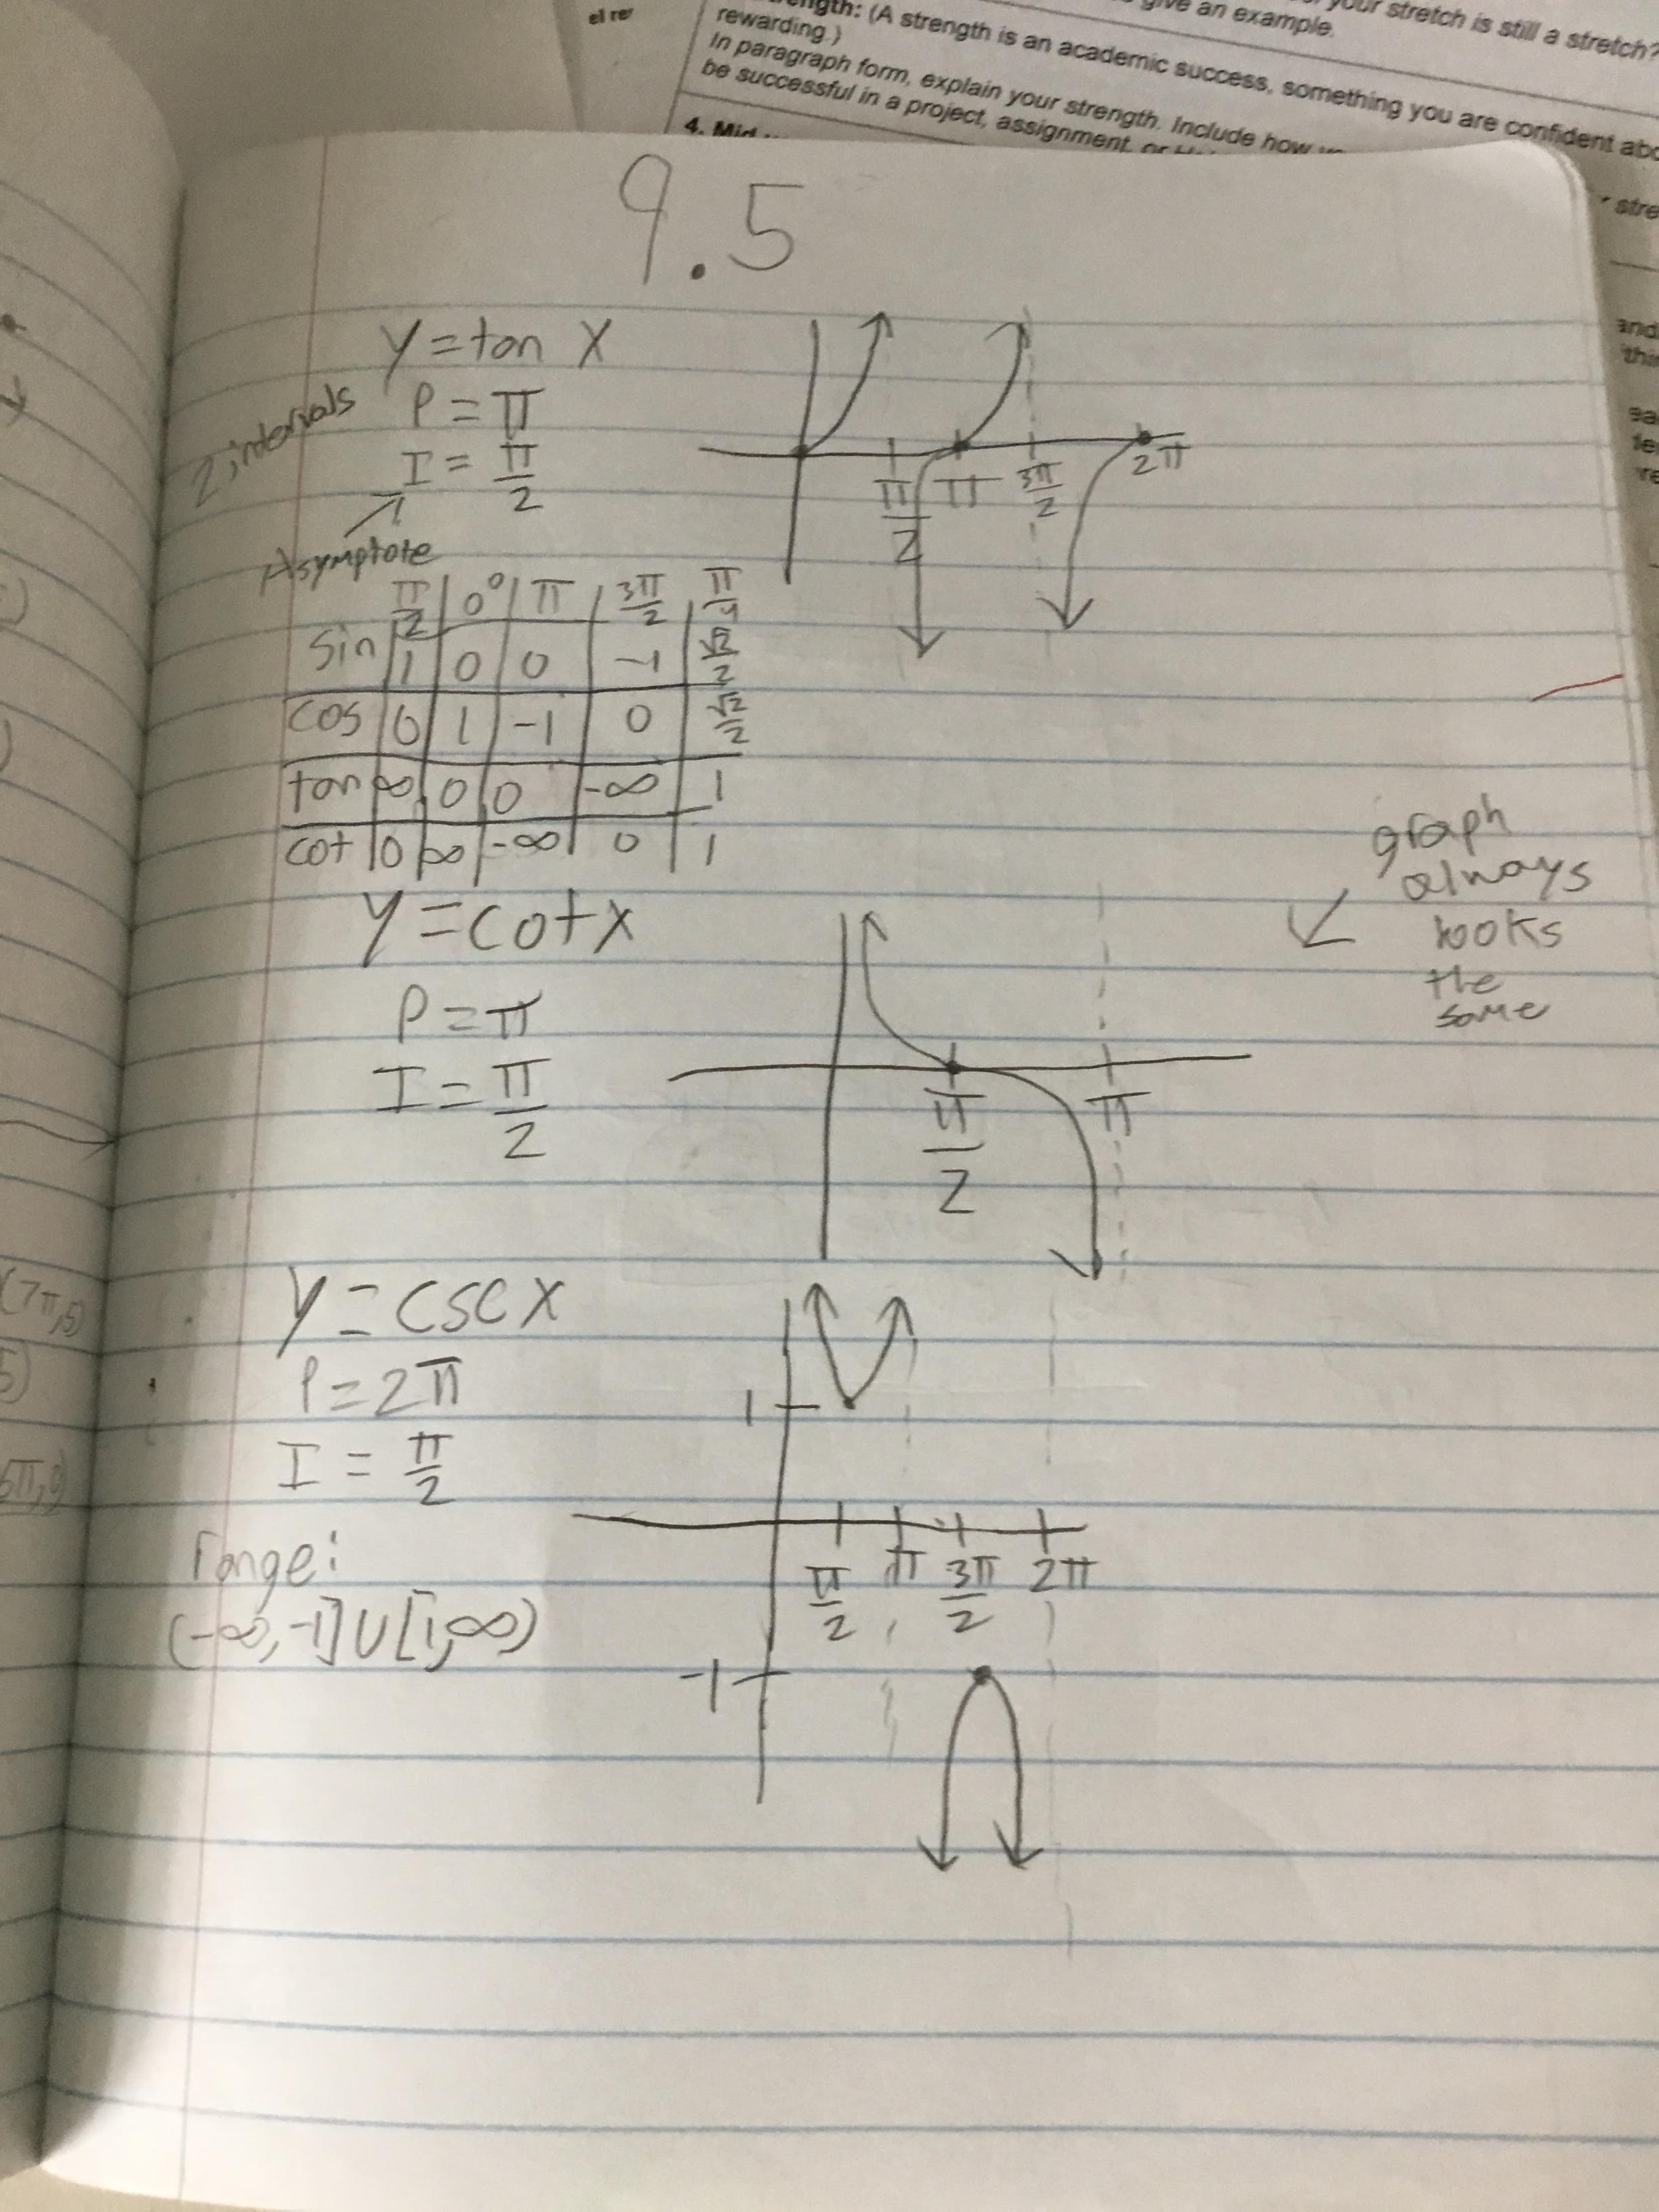 el re
your stretch is still a stretch?
give an example.
ength: (A strength is an academic success, something you are confident abo
rewarding.)
In paragraph form, explain your strength. Include how
be successful in a project, assignment, or
4. Mid
stre
and
thi
9.5
y = tan x
2 intervals
P = π
I = π/2
Asymptote
π/2 π 3π/2 2π
π/2 0° π 3π/2 π/4
sin 1 0 0 -1 √2/2
cos 0 1 -1 0 √2/2
tan ∞ 0 0 -∞ 1
cot 0 ∞ -∞ 0 1
graph
always
looks
the
same
y = cot x
P = π
I = π/2
π/2 π
y = csc x
P = 2π
I = π/2
1
π/2 π 3π/2 2π
range:
(-∞, -1] U [1, ∞)
-1
(7π, 5)
5)
6π, 9)